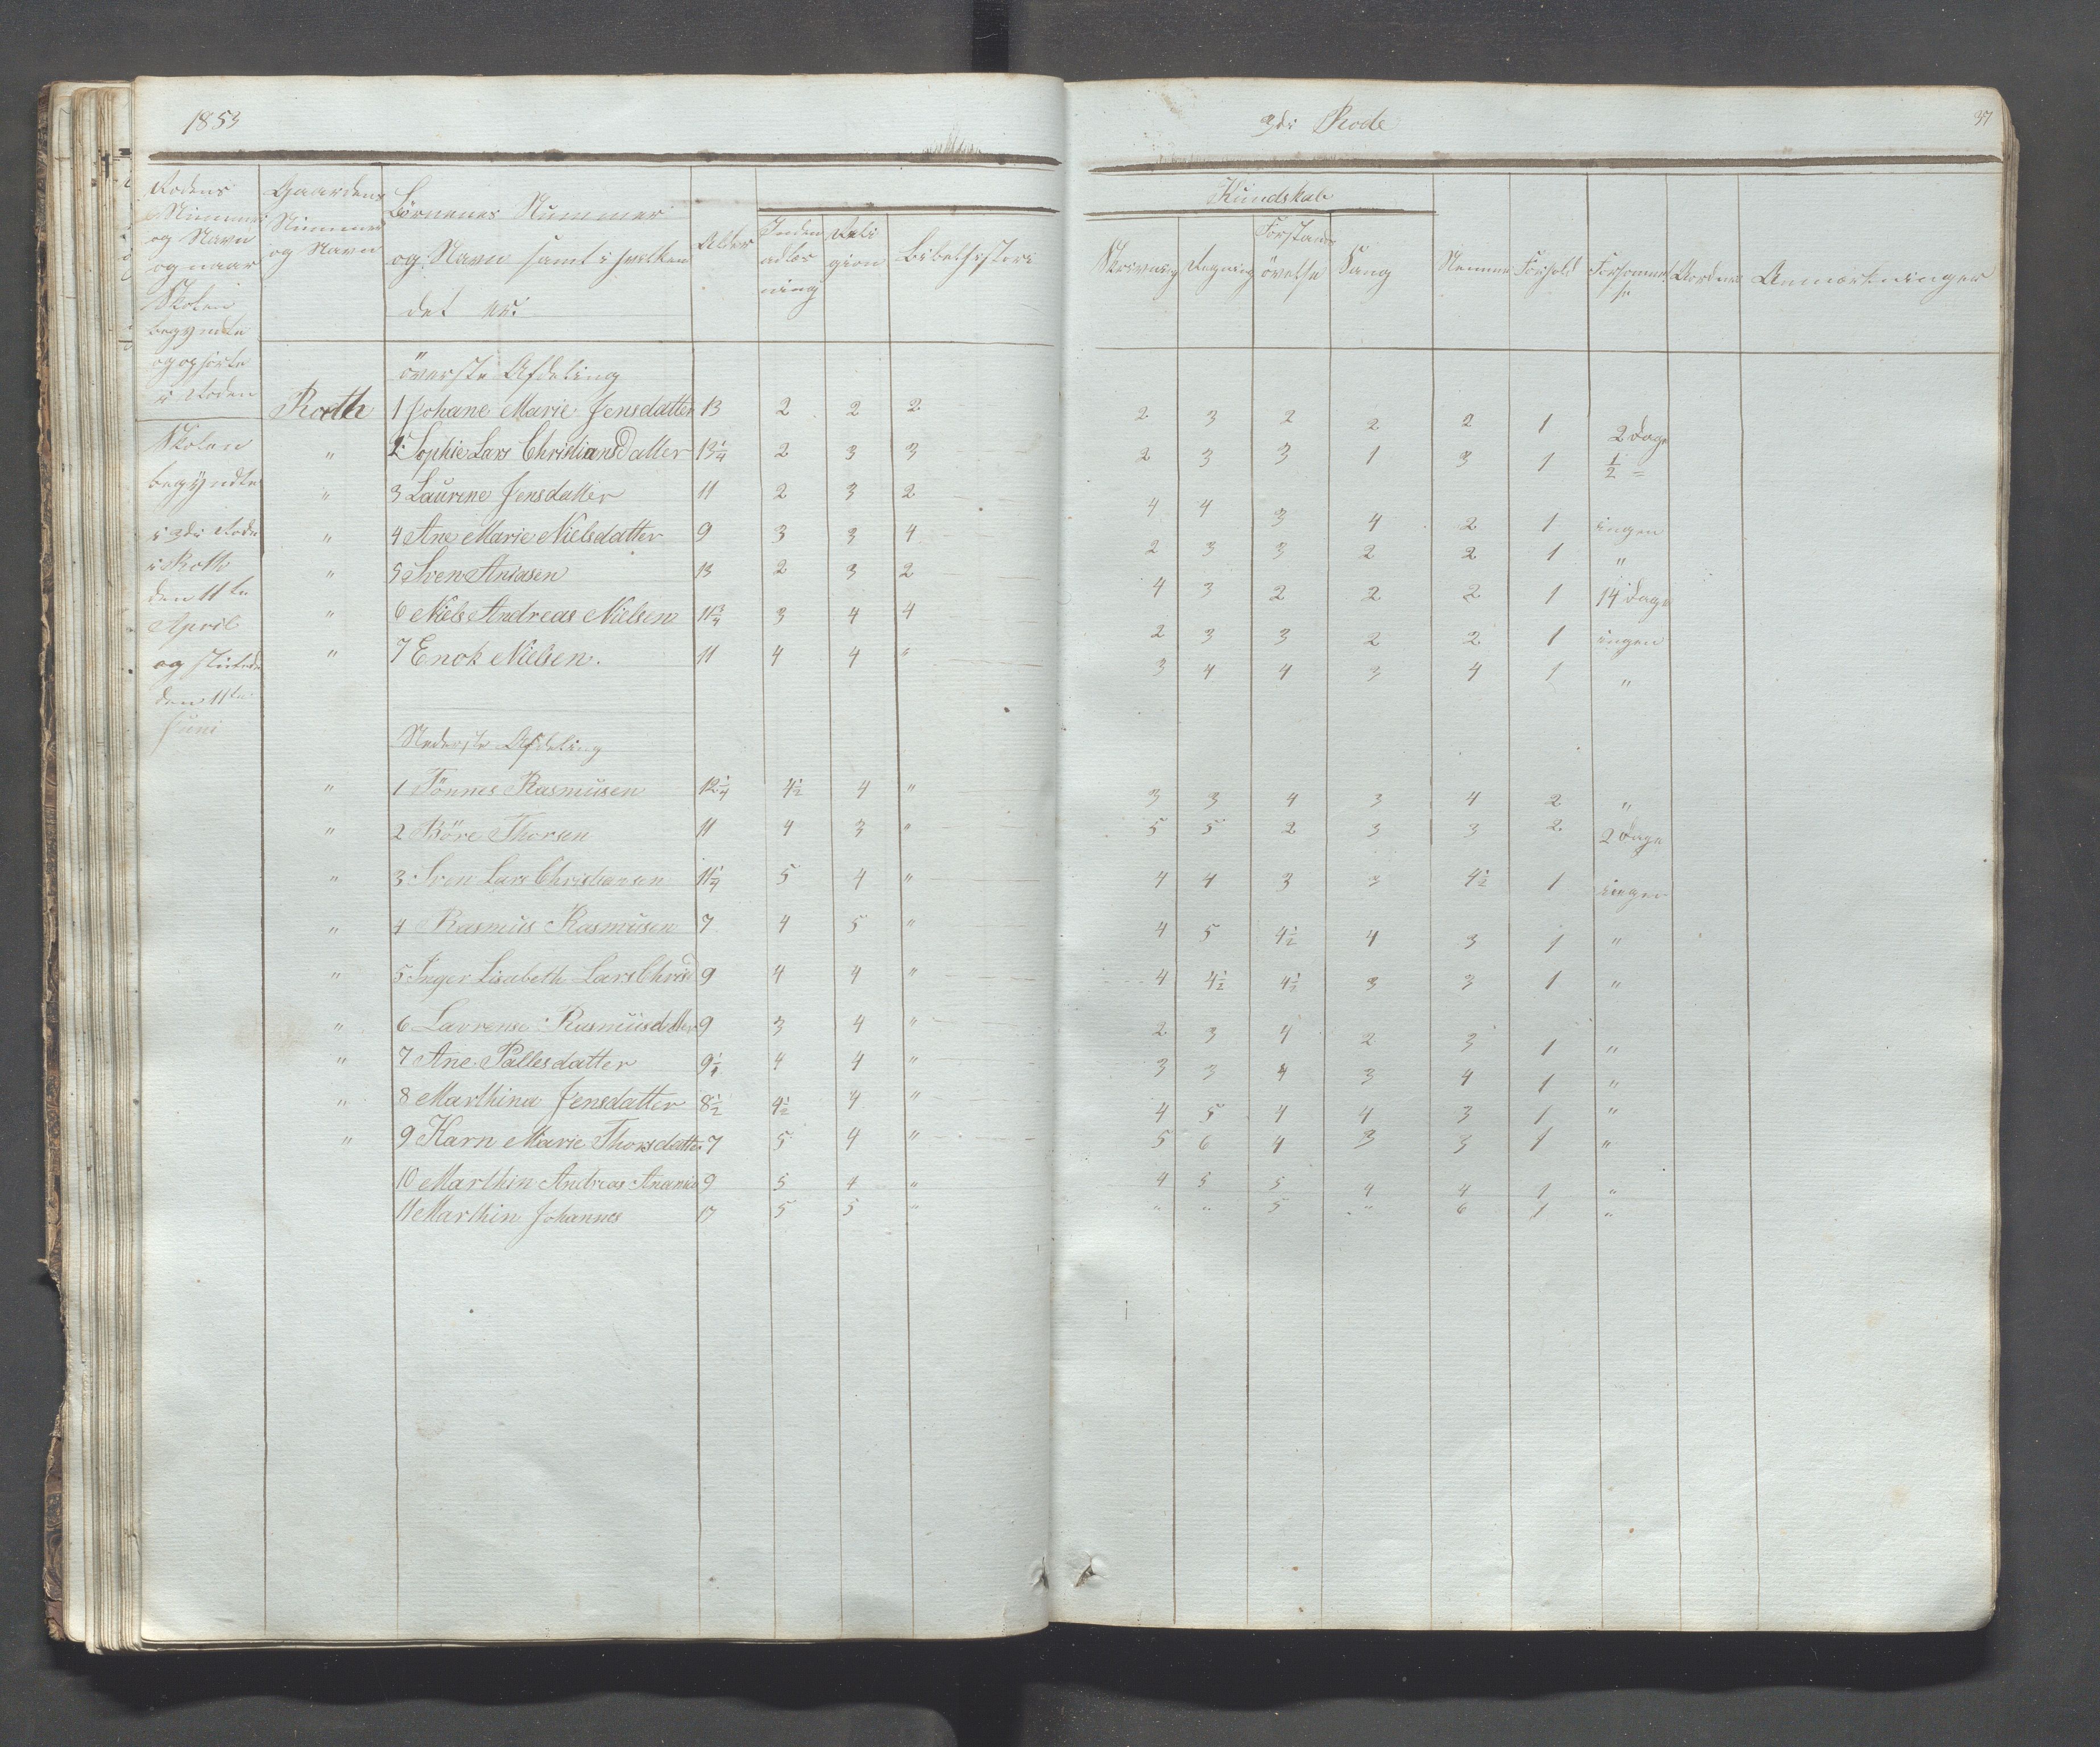 1853
3die Rode
37
Rodens Nummer og Navn og naar Skolen begyndte og ophörte i Roden
Gaardens Nummer og Navn
Börnenes Nummer og Navn samt i hvilken det er:
Alder
Inden adlæs ning
Reli gion
Bibelhistori
Kundskab
Skrivning
Regning
Forstands övelse
Sang
Nemme
Forhold
Forsömmel se
Anmærkninger
överste Afdeling
Skolen begyndte i 3die Rode i Roth den 11te April og sluttede den 11te Juni
Roth 1 Johane Marie Jensdatter 13 2 2 2 2 3 2 2 2 1 2 Dage
" 2 Sophie Lars Christiansdatter 13 1/4 2 3 3 2 3 3 1 3 1 1/2 =
" 3 Laurine Jensdatter 11 2 3 2 4 4 3 4 2 1 ingen
" 4 Ane Marie Nielsdatter 9 3 3 4 2 3 3 2 2 1 "
" 5 Sven Aniasen 13 2 3 2 4 3 2 2 2 1 14 Dage
" 6 Niels Andreas Nielsen 11 3/4 3 4 4 2 3 3 2 2 1 ingen
" 7 Enok Nielsen. 11 4 4 " 3 4 4 3 4 1 "
Nederste Afdeling
" 1 Tönnes Rasmusen 12 1/4 4 1/2 4 " 3 3 4 3 4 2 "
" 2 Böre Thorsen 11 4 3 " 5 5 2 3 3 2 2 Dage
" 3 Sven Lars Christiansen 11 1/4 5 4 " 4 4 3 3 4 1/2 1 ingen
" 4 Rasmus Rasmusen 7 4 5 " 4 5 4 1/2 4 3 1 "
" 5 Inger Lisabeth Lars Chrisd 9 4 4 " 4 4 1/2 4 1/2 3 3 1 "
" 6 Lavrense Rasmusdatter 9 3 4 " 2 3 4 2 3 1 "
" 7 Ane Pallesdatter 9 1/2 4 4 " 3 3 4 3 4 1 "
" 8 Marthina Jensdatter 8 1/2 4 1/2 4 " 4 5 4 4 3 1 "
" 9 Karn Marie Thorsdatter 7 5 4 " 5 6 4 3 3 1 "
10 Marthin Andreas Anania 9 5 4 " 4 5 5 4 4 1 "
11 Marthin Johannes 17 5 5 " " " 5 " 6 1 "